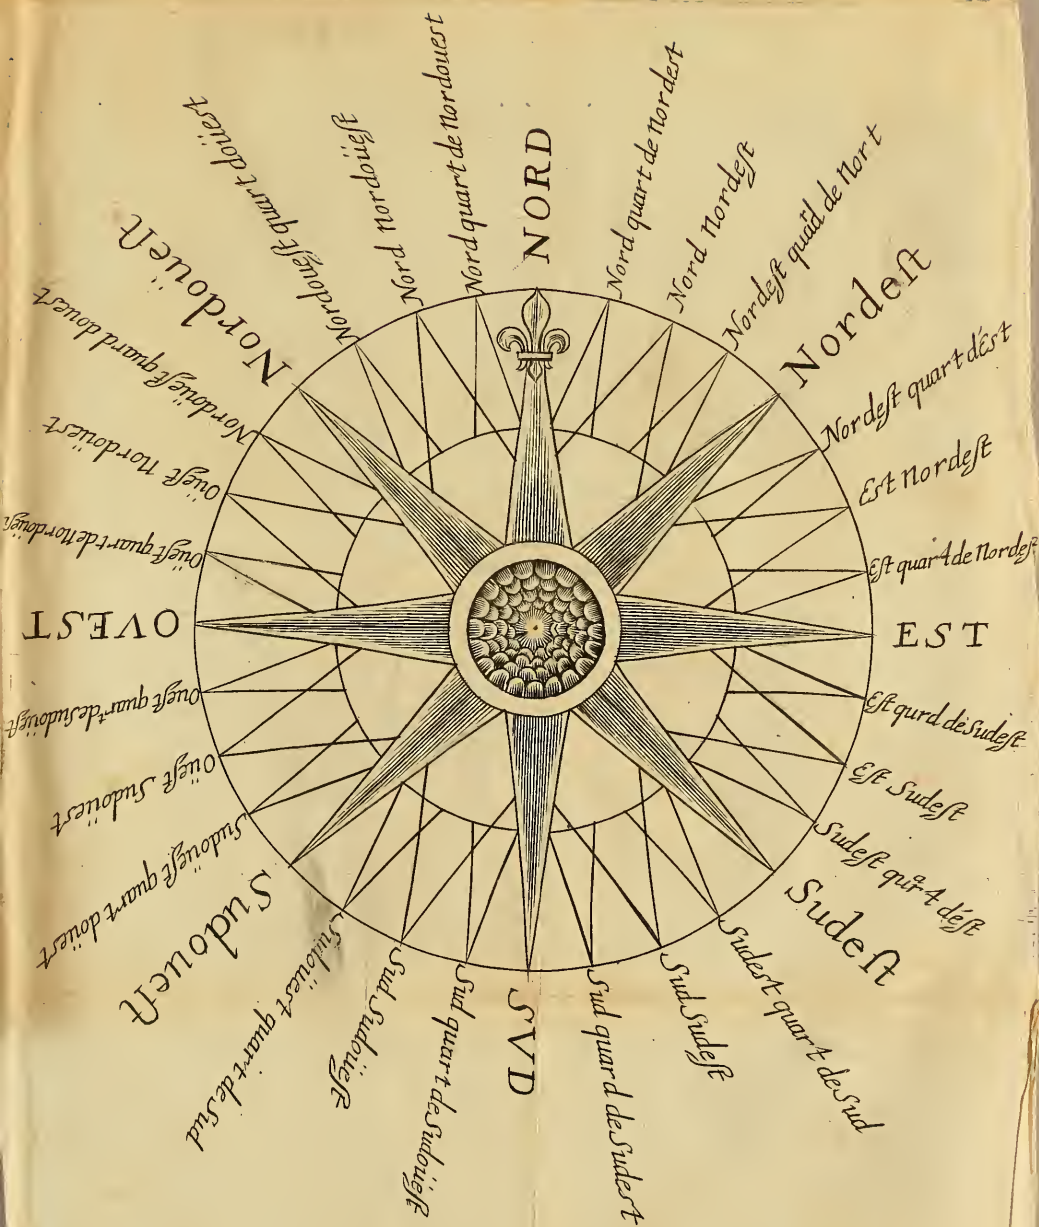 NORD
Nord quart de nordest
Nord nordeſt
Nordeſt quard de nort
Nordeſt
Nordeſt quart dÉst
Est nordeſt
Eſt quart de nordeſt
EST
Eſt qurd de Sudeſt
Eſt Sudeſt
Sudeſt quart déſt
Sudeſt
Sudest quart de Sud
Sud Sudeſt
Sud quard de Sudest
SVD
Sud quart de Sudoüeſt
Sud Sudoüeſt
Sudoüest quart de Sud
Sudoueſt
Sudoüeſt quart doüest
Oüeſt Sudoüest
Oueſt quart de Sudoüeſt
OVEST
Oüeſt quart de nordoüeſt
Oüeſt nordoüest
Nordoüeſt quard douest
Nordoüeſt
Nordoueſt quart doüest
Nord nordoüeſt
Nord quart de nordouest